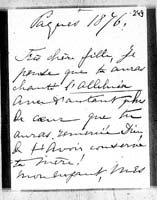 249
Pâques 1876.
Très chère fille, je
pense que tu auras
chanté l'Alleluia
avec d'autant plus
de cœur que tu
auras remercié Dieu
de t'avoir conservé
ta mère!
mon enfant, mes